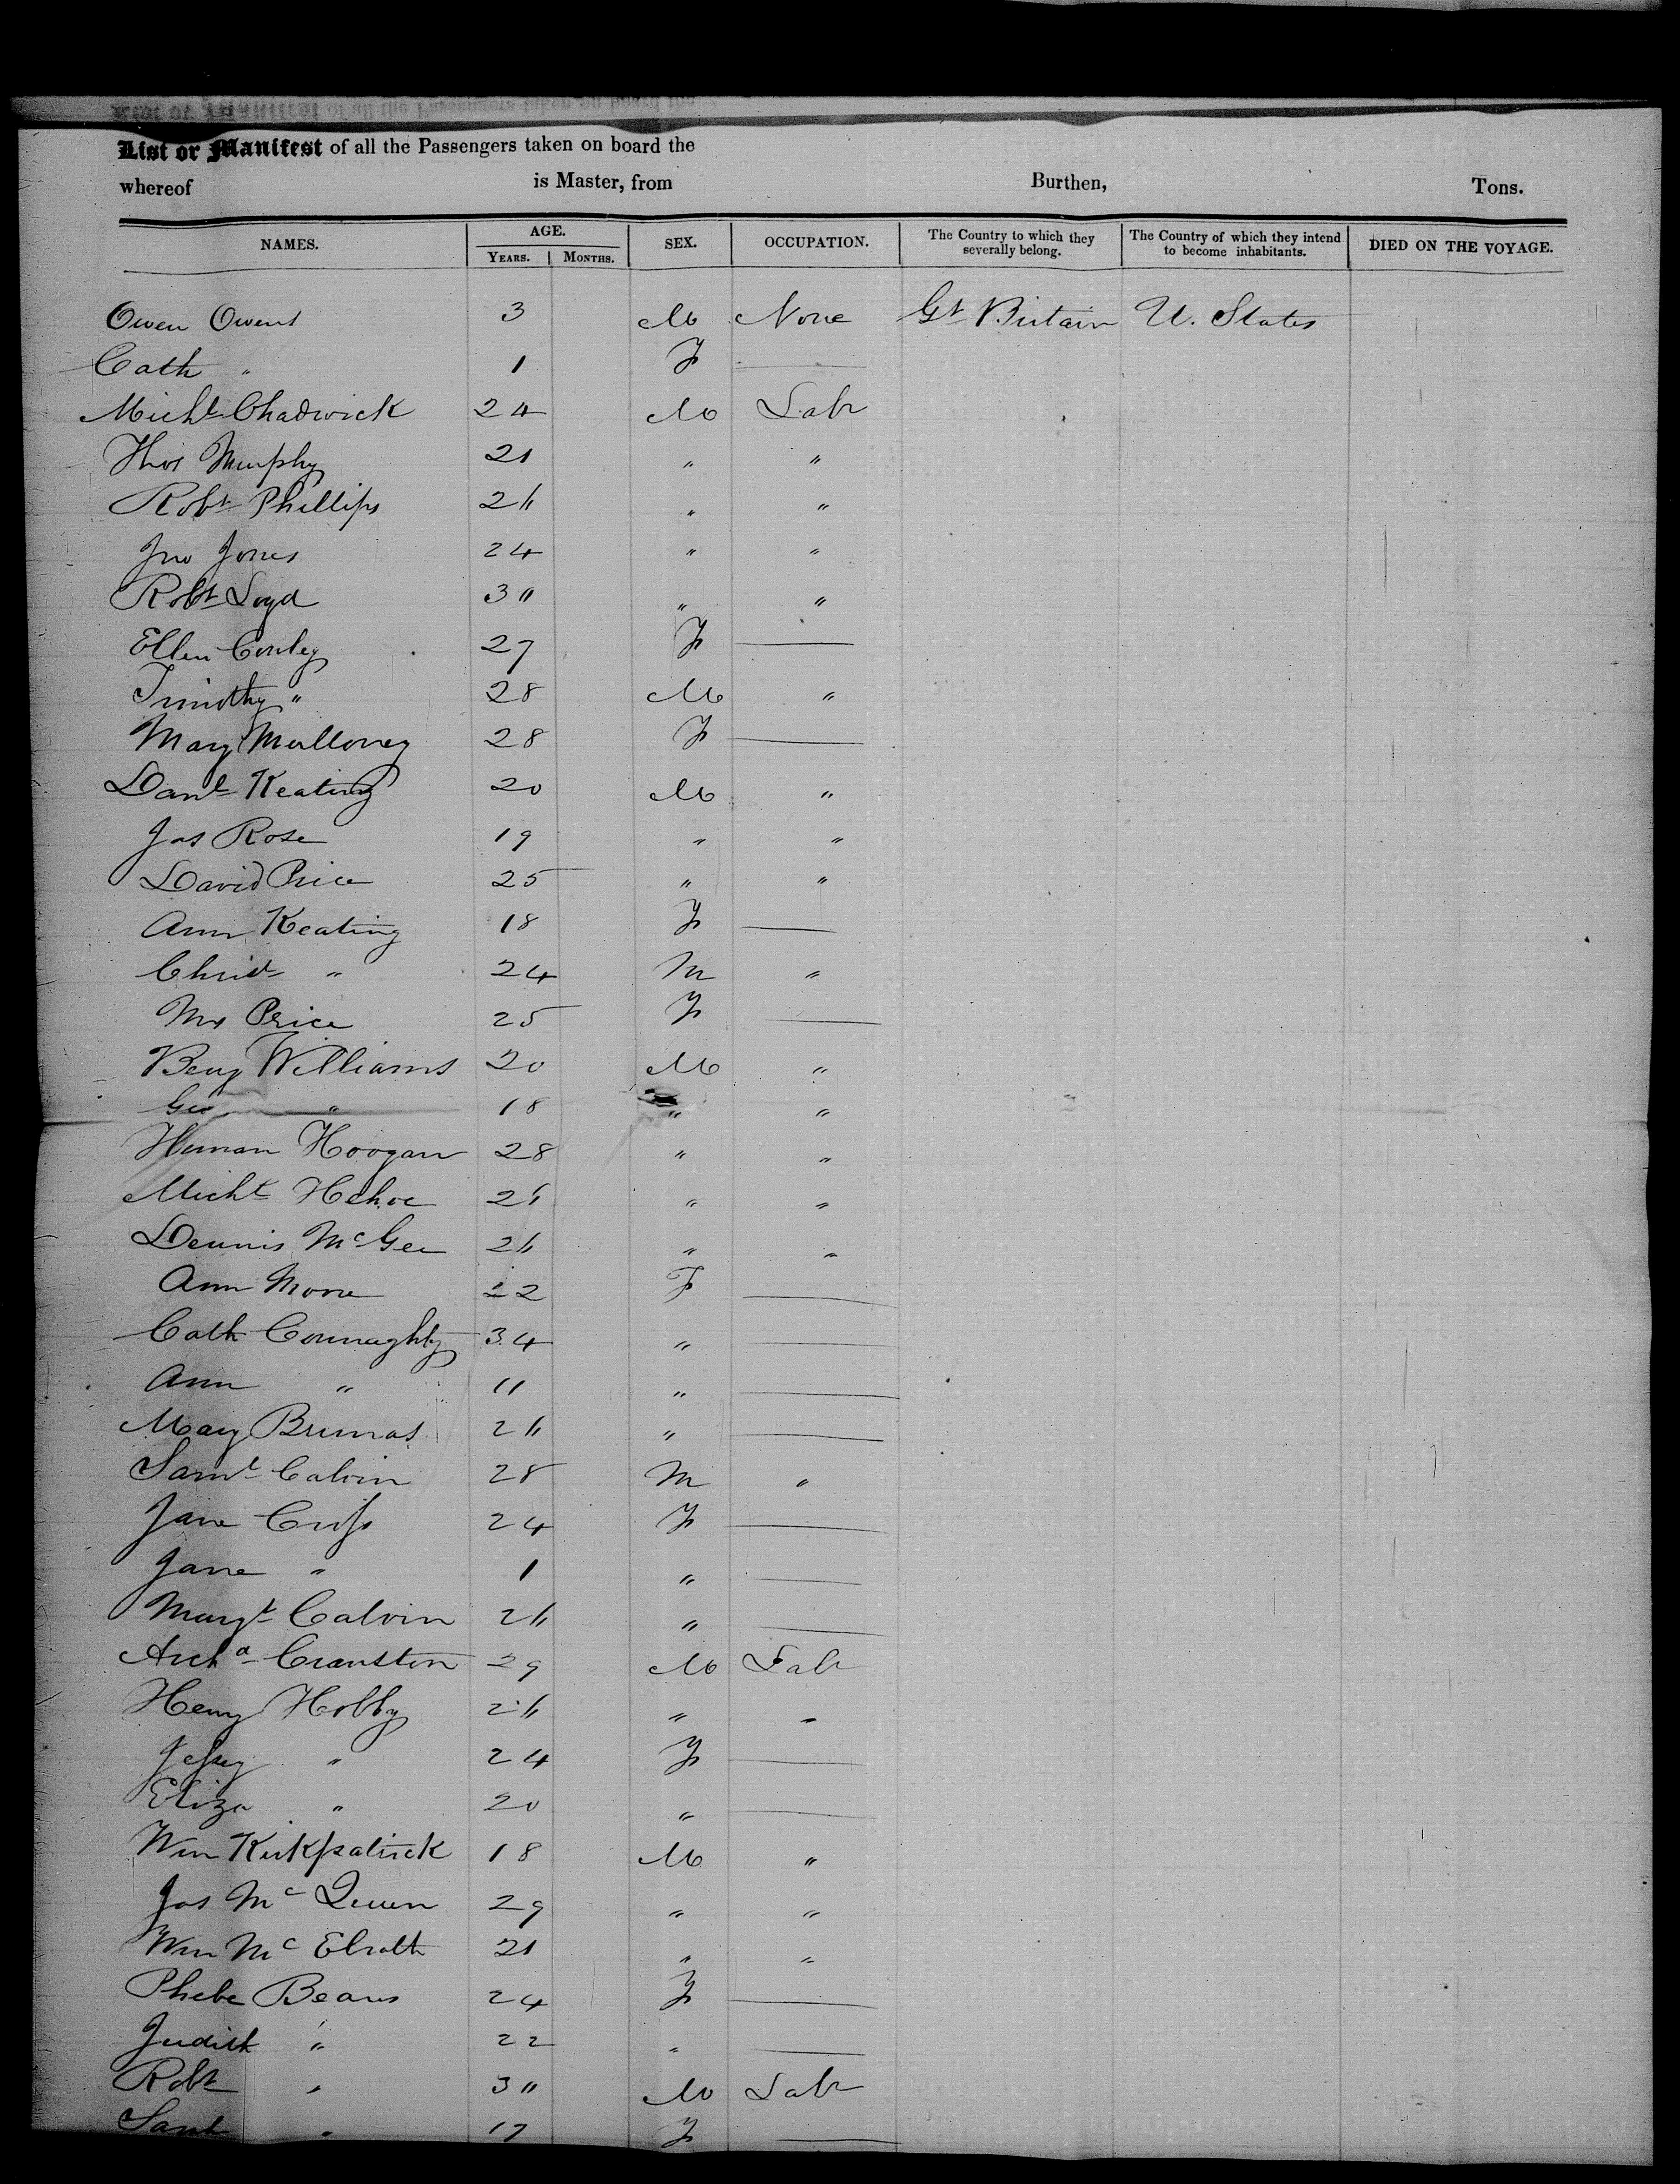 List or Manifest of all the Passengers taken on board the
whereof is Master, from Burthen, Tons.
NAMES. AGE. SEX. OCCUPATION. The Country to which they severally belong. The Country of which they intend to become inhabitants. DIED ON THE VOYAGE.
YEARS. MONTHS.
Owen Owens 3 M None Gt Britain U. States
Cath " 1 F
Michl Chadwick 24 M Labr
Thos Murphy 21 " "
Robt Phillips 2 " "
Jno Jones 24 " "
Robt Loyd 3 " "
Ellen Conley 27 F
Timothy " 28 M "
Mary Mulloney 28 F
Danl Keating 20 M "
Jas Rose 19 " "
David Price 25 " "
Ann Keating 18 F
Christ " 24 M "
Mrs Price 25 F
Benj Williams 20 M "
Geo " 18 " "
Hoogan 28 " "
Michl 2 " "
Dennis McGee 2 " "
Ann Moore 22 F
Cath Connaghty 34 "
Ann " 11 "
Mary 2 "
Saml Calvin 28 M "
Jane 24 F
Jane " 1 "
Margt Calvin 2 "
Archd Cranston 29 M Labr
Henry Hobby 2 " "
Jessey " 24 F
Eliza " 20 "
Wm Kirkpatrick 18 M "
Jas Mc Queen 29 " "
Wm Mc Elrath 21 " "
Phebe Beans 24 F
Judith " 22 "
Robt " 3 M Labr
Sarah " 17 F